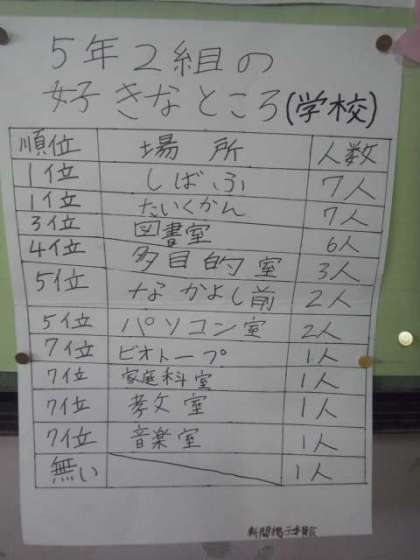 5年2組の
好きなところ(学校)
順位 場所 人数
1位 しばふ 7人
1位 たいくかん 7人
3位 図書室 6人
4位 多目的室 3人
5位 なかよし前 2人
5位 パソコン室 2人
7位 ビオトープ 1人
7位 家庭科室 1人
7位 孝文室 1人
7位 音楽室 1人
無い 1人
新聞掲示委員会